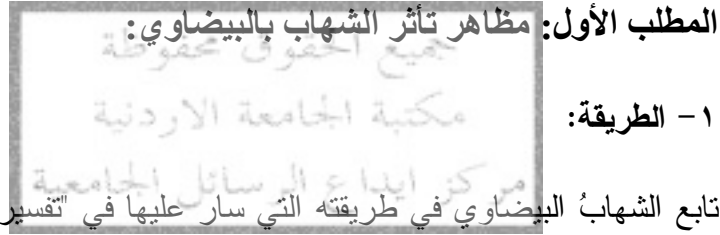 المطلب الأول: مظاهر تأثر الشهاب بالبيضاوي:
جميع الحقوق محفوظة
مكتبة الجامعة الاردنية
١- الطريقة:
مركز ايداع الرسائل الجامعية
تابع الشهابُ البيضاوي في طريقته التي سار عليها في "تفسير